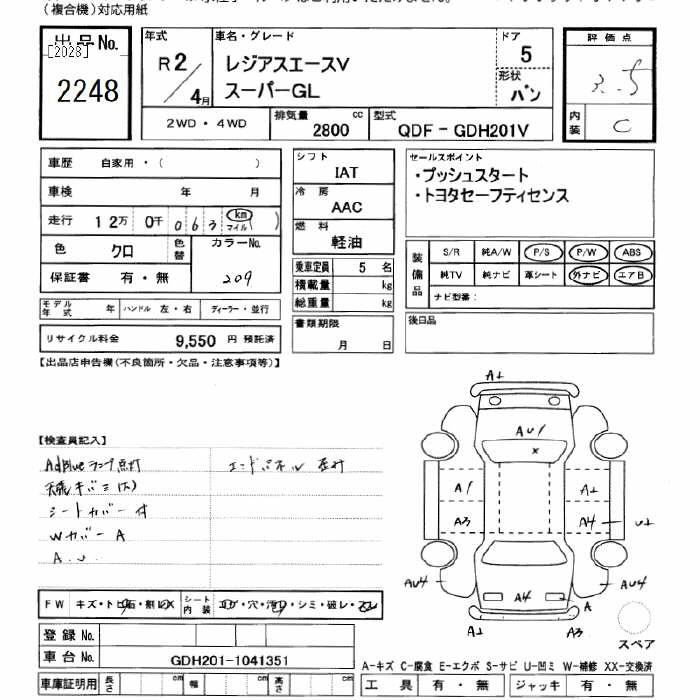 (複合機)対応用紙
出品No.
[2028]
2248
年式
R2/4月
車名・グレード
レジアスエースV
スーパーGL
ドア
5
形状
バン
評価点
3.5
内装
C
2WD・4WD
排気量
2800 cc
型式
QDF-GDH201V
車歴 自家用・( )
車検 年 月
走行 12万 0千 063 km マイル( )
色 クロ
色替
カラーNo.
209
保証書 有・無
シフト
IAT
冷房
AAC
燃料
軽油
乗車定員 5 名
積載量 kg
総重量 kg
セールスポイント
・プッシュスタート
・トヨタセーフティセンス
装備品
S/R 純A/W P/S P/W ABS
純TV 純ナビ 革シート 外ナビ エアB
ナビ型番:
モデル年式 年 ハンドル 左・右 ディーラー・並行
リサイクル料金 9,550 円 預託済
書類期限
月 日
後日品
【出品店申告欄(不良箇所・欠品・注意事項等)】
【検査員記入】
AdBlueランプ点灯
シートカバー付
Wカバー A
A.U
A1
AU1
x
A1
A1
A3
A4
U2
AU4
A4
AU4
A
A1
A3
スペア
FW キズ・トビ石・割レX
シート内装 コゲ・穴・汚レ・シミ・破レ・スレ
登録No.
車台No. GDH201-1041351
車庫証明用 長さ cm 幅 cm 高さ cm
A-キズ C-腐食 E-エクボ S-サビ U-凹ミ W-補修 XX-交換済
工具 有・無 ジャッキ 有・無